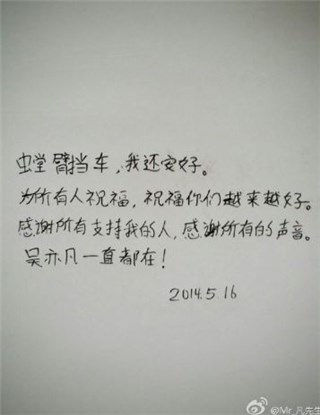 螳臂挡车,我还安好。
为所有人祝福,祝福你们越来越好。
感谢所有支持我的人,感谢所有的声音。
吴亦凡一直都在!
2014.5.16
@Mr_凡先生